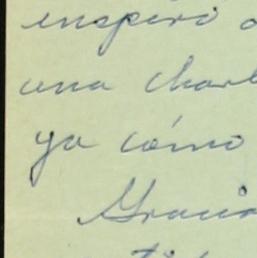 inspiró
una charl
ya cómo
Gracia